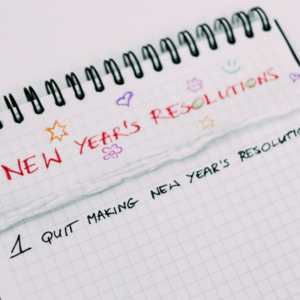 NEW YEAR'S RESOLUTIONS
1 QUIT MAKING NEW YEAR'S RESOLUTIO